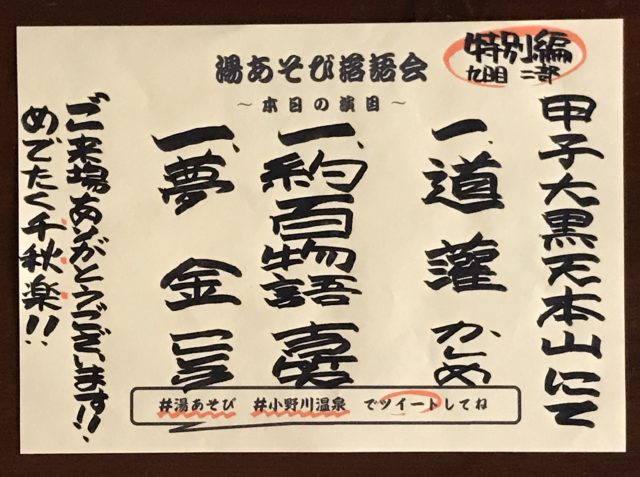 特別編
九日目 二部
湯あそび落語会
～本日の演目～
甲子大黒天本山にて
一、道灌 かしめ
一、約百物語 吉笑
一、夢金
ご来場ありがとうございます!!
めでたく千秋楽!!
#湯あそび #小野川温泉 でツイートしてね